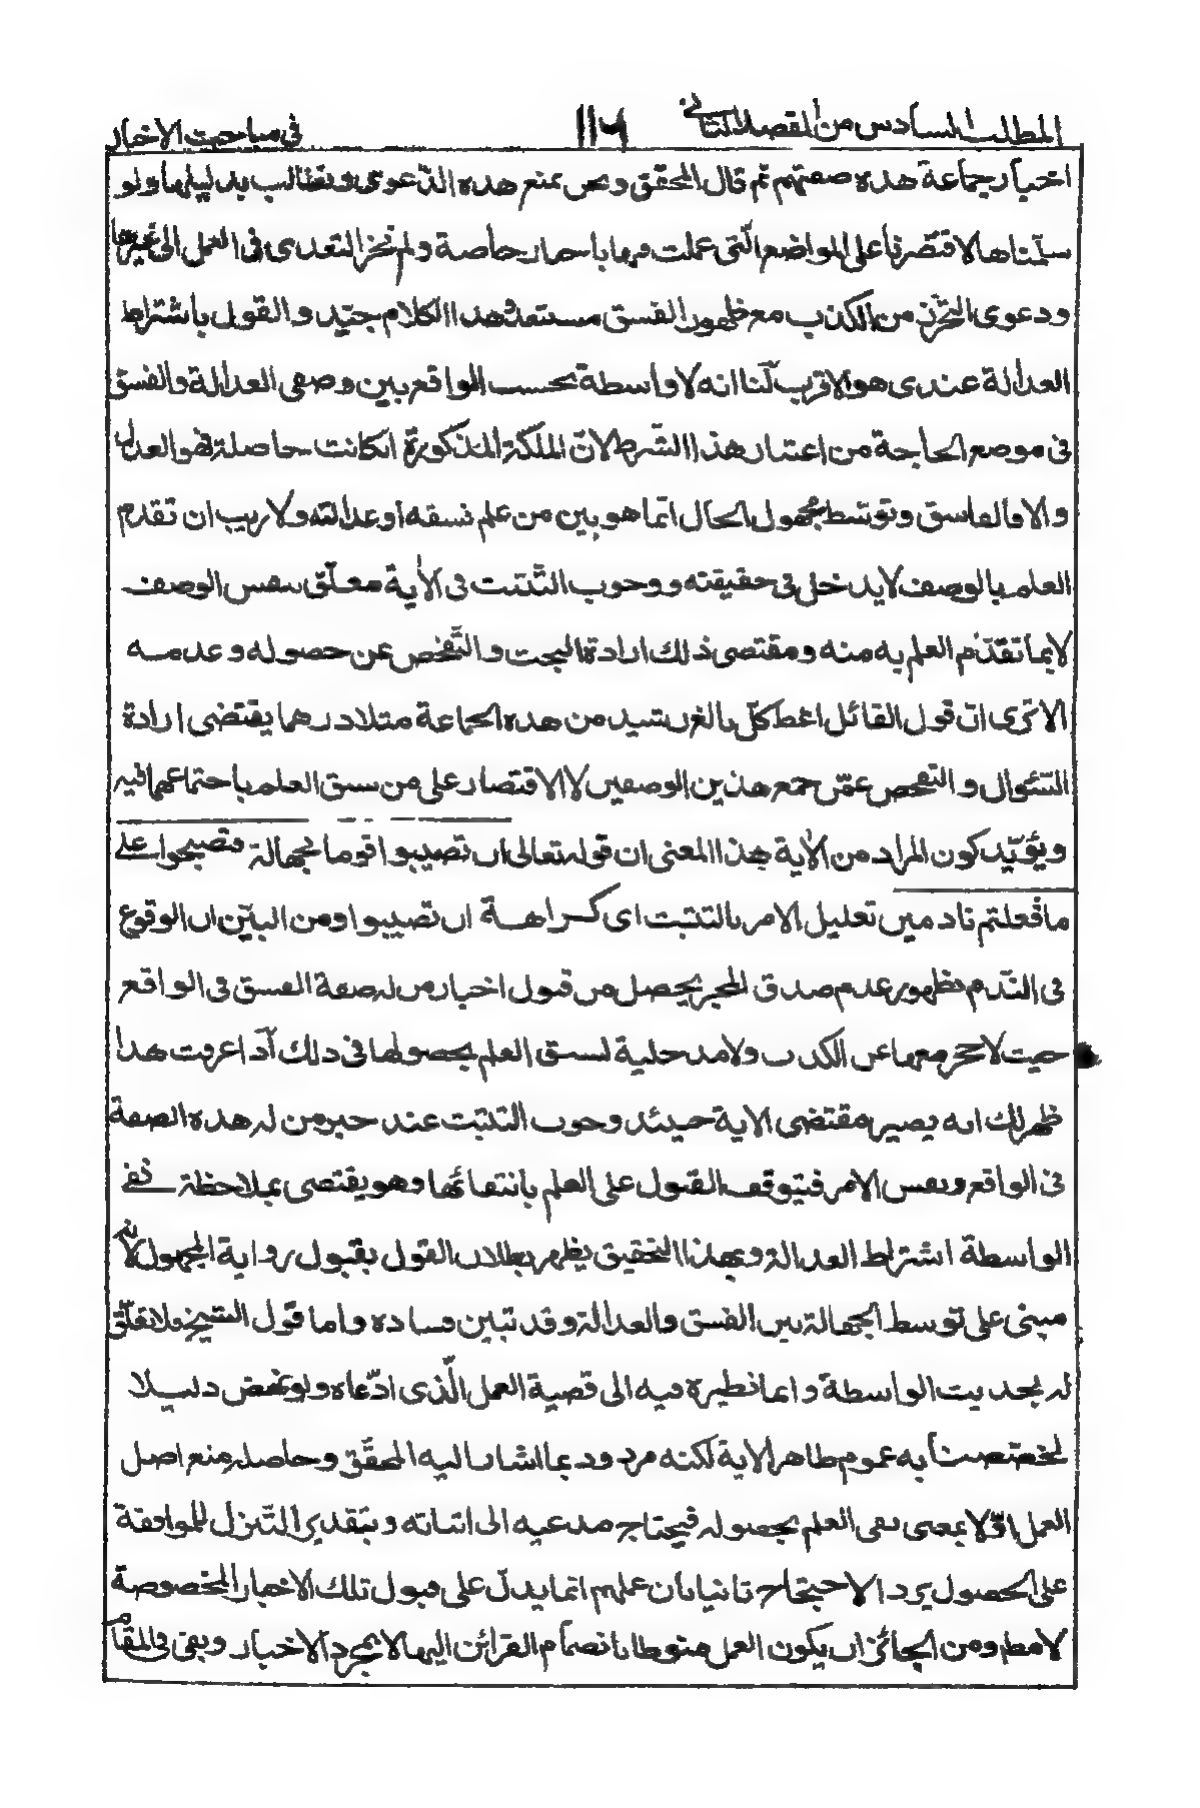 المطلب السادس من المقصد الثاني ١١٦ في مباحث الاخبار
اخبار جماعة هذه صفتهم ثم قال المحقق ونحن نمنع هذه الدّعوى ونطالب بدليلها ولو
سلّمناها لاقتصرنا على المواضع الّتى عملت فيها باخبار خاصة ولم نجز التعدى فى العمل الى غيرها
ودعوى التحرّز من الكذب مع ظهور الفسق مستبعد هذا الكلام جيّد والقول باشتراط
العدالة عندى هو الاقرب لنا انه لا واسطة بحسب الواقع بين وصفى العدالة والفسق
فى موضع الحاجة من اعتبار هذا الشّرط لانّ الملكة المذكورة ان كانت حاصلة فهو العدل
والا فالفاسق وتوسّط مجهول الحال انّما هو بين من علم فسقه او عدالته ولا ريب ان تقدم
العلم بالوصف لا يدخل فى حقيقته ووجوب التثبّت فى الاية معلّق بنفس الوصف
لا بما تقدّم العلم به منه ومقتضى ذلك ارادة البحث والتفحّص عن حصوله وعدمه
الا ترى ان قول القائل اعط كلّ بالغ رشيد من هذه الجماعة مثلا درهما يقتضى ارادة
السّئوال والتفحص عمّن جمع هذين الوصفين لا الاقتصار على من سبق العلم باجتماعهما فيه
ويؤيّد كون المراد من الاية هذا المعنى ان قوله تعالى ان تصيبوا قوما بجهالة فتصبحوا على
ما فعلتم نادمين تعليل الامر بالتثبت اى كراهة ان تصيبوا ومن البيّن ان الوقوع
فى النّدم بظهور عدم صدق المخبر يحصل من قبول اخبار من له صفة الفسق فى الواقع
حيث لا حجر معها عن الكذب ولا مدخلية لسبق العلم بحصولها فى ذلك اذا عرفت هذا
ظهر لك انه يصير مقتضى الاية حينئذ وجوب التثبت عند خبر من له هذه الصفة
فى الواقع ونفس الامر فيتوقف القبول على العلم بانتفائها وهو يقتضى بملاحظة نفى
الواسطة اشتراط العدالة وبهذا التحقيق يظهر بطلان القول بقبول رواية المجهول لانّه
مبنى على توسط الجهالة بين الفسق والعدالة وقد تبين فساده واما قول الشيخ فلا تعلّق
له بحديث الواسطة وانما نظره فيه الى قضية العمل الّذى ادّعاه ولو نهض دليلا
لخصّصنا به عموم ظاهر الاية لكنه مردود بما اشار اليه المحقّق وحاصله منع اصل
العمل اوّلا بمعنى نفى العلم بحصوله فيحتاج مدعيه الى اثباته وبتقدير التنزل للموافقة
على الحصول يرد الاحتجاج ثانيا بان عملهم انما يدلّ على قبول تلك الاخبار المخصوصة
لا مطلقا ومن الجائز ان يكون العمل منوطا بانضمام القرائن اليها لا بمجرد الاخبار وبقى فى المقام